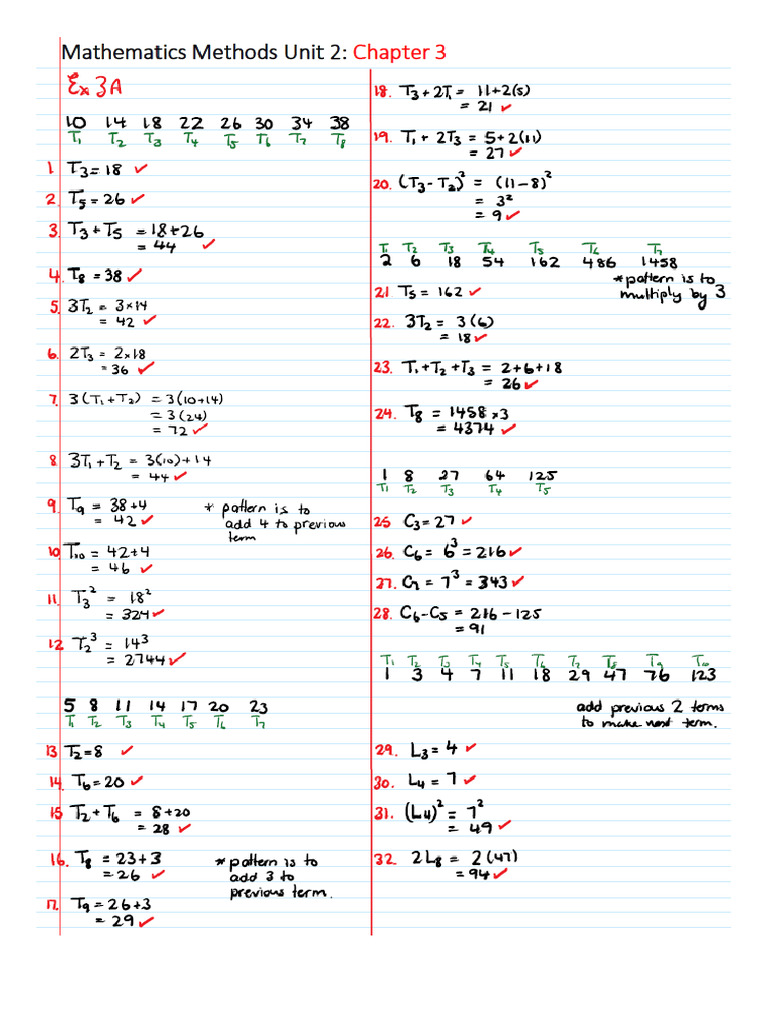 Mathematics Methods Unit 2: Chapter 3
Ex 3A
10 14 18 22 26 30 34 38
T₁ T₂ T₃ T₄ T₅ T₆ T₇ T₈
1. T₃ = 18 ✓
2. T₅ = 26 ✓
3. T₃ + T₅ = 18 + 26
= 44 ✓
4. T₈ = 38 ✓
5. 3T₂ = 3 × 14
= 42 ✓
6. 2T₃ = 2 × 18
= 36 ✓
7. 3(T₁ + T₂) = 3(10+14)
= 3(24)
= 72 ✓
8. 3T₁ + T₂ = 3(10) + 14
= 44 ✓
9. T₉ = 38 + 4
= 42 ✓
* pattern is to
add 4 to previous
term
10. T₁₀ = 42 + 4
= 46 ✓
11. T₃² = 18²
= 324 ✓
12. T₂³ = 14³
= 2744 ✓
5 8 11 14 17 20 23
T₁ T₂ T₃ T₄ T₅ T₆ T₇
13. T₂ = 8 ✓
14. T₆ = 20 ✓
15 T₂ + T₆ = 8 + 20
= 28 ✓
16. T₈ = 23 + 3
= 26 ✓
* pattern is to
add 3 to
previous term.
17. T₉ = 26 + 3
= 29 ✓
18. T₃ + 2T₁ = 11 + 2(5)
= 21 ✓
19. T₁ + 2T₃ = 5 + 2(11)
= 27 ✓
20. (T₃ - T₂)² = (11 - 8)²
= 3²
= 9 ✓
T₁ T₂ T₃ T₄ T₅ T₆ T₇
2 6 18 54 162 486 1458
* pattern is to
multiply by 3
21. T₅ = 162 ✓
22. 3T₂ = 3(6)
= 18 ✓
23. T₁ + T₂ + T₃ = 2 + 6 + 18
= 26 ✓
24. T₈ = 1458 × 3
= 4374 ✓
1 8 27 64 125
T₁ T₂ T₃ T₄ T₅
25 C₃ = 27 ✓
26. C₆ = 6³ = 216 ✓
27. C₇ = 7³ = 343 ✓
28. C₆ - C₅ = 216 - 125
= 91
T₁ T₂ T₃ T₄ T₅ T₆ T₇ T₈ T₉ T₁₀
1 3 4 7 11 18 29 47 76 123
add previous 2 terms
to make next term.
29. L₃ = 4 ✓
30. L₄ = 7 ✓
31. (L₄)² = 7²
= 49 ✓
32. 2L₈ = 2(47)
= 94 ✓